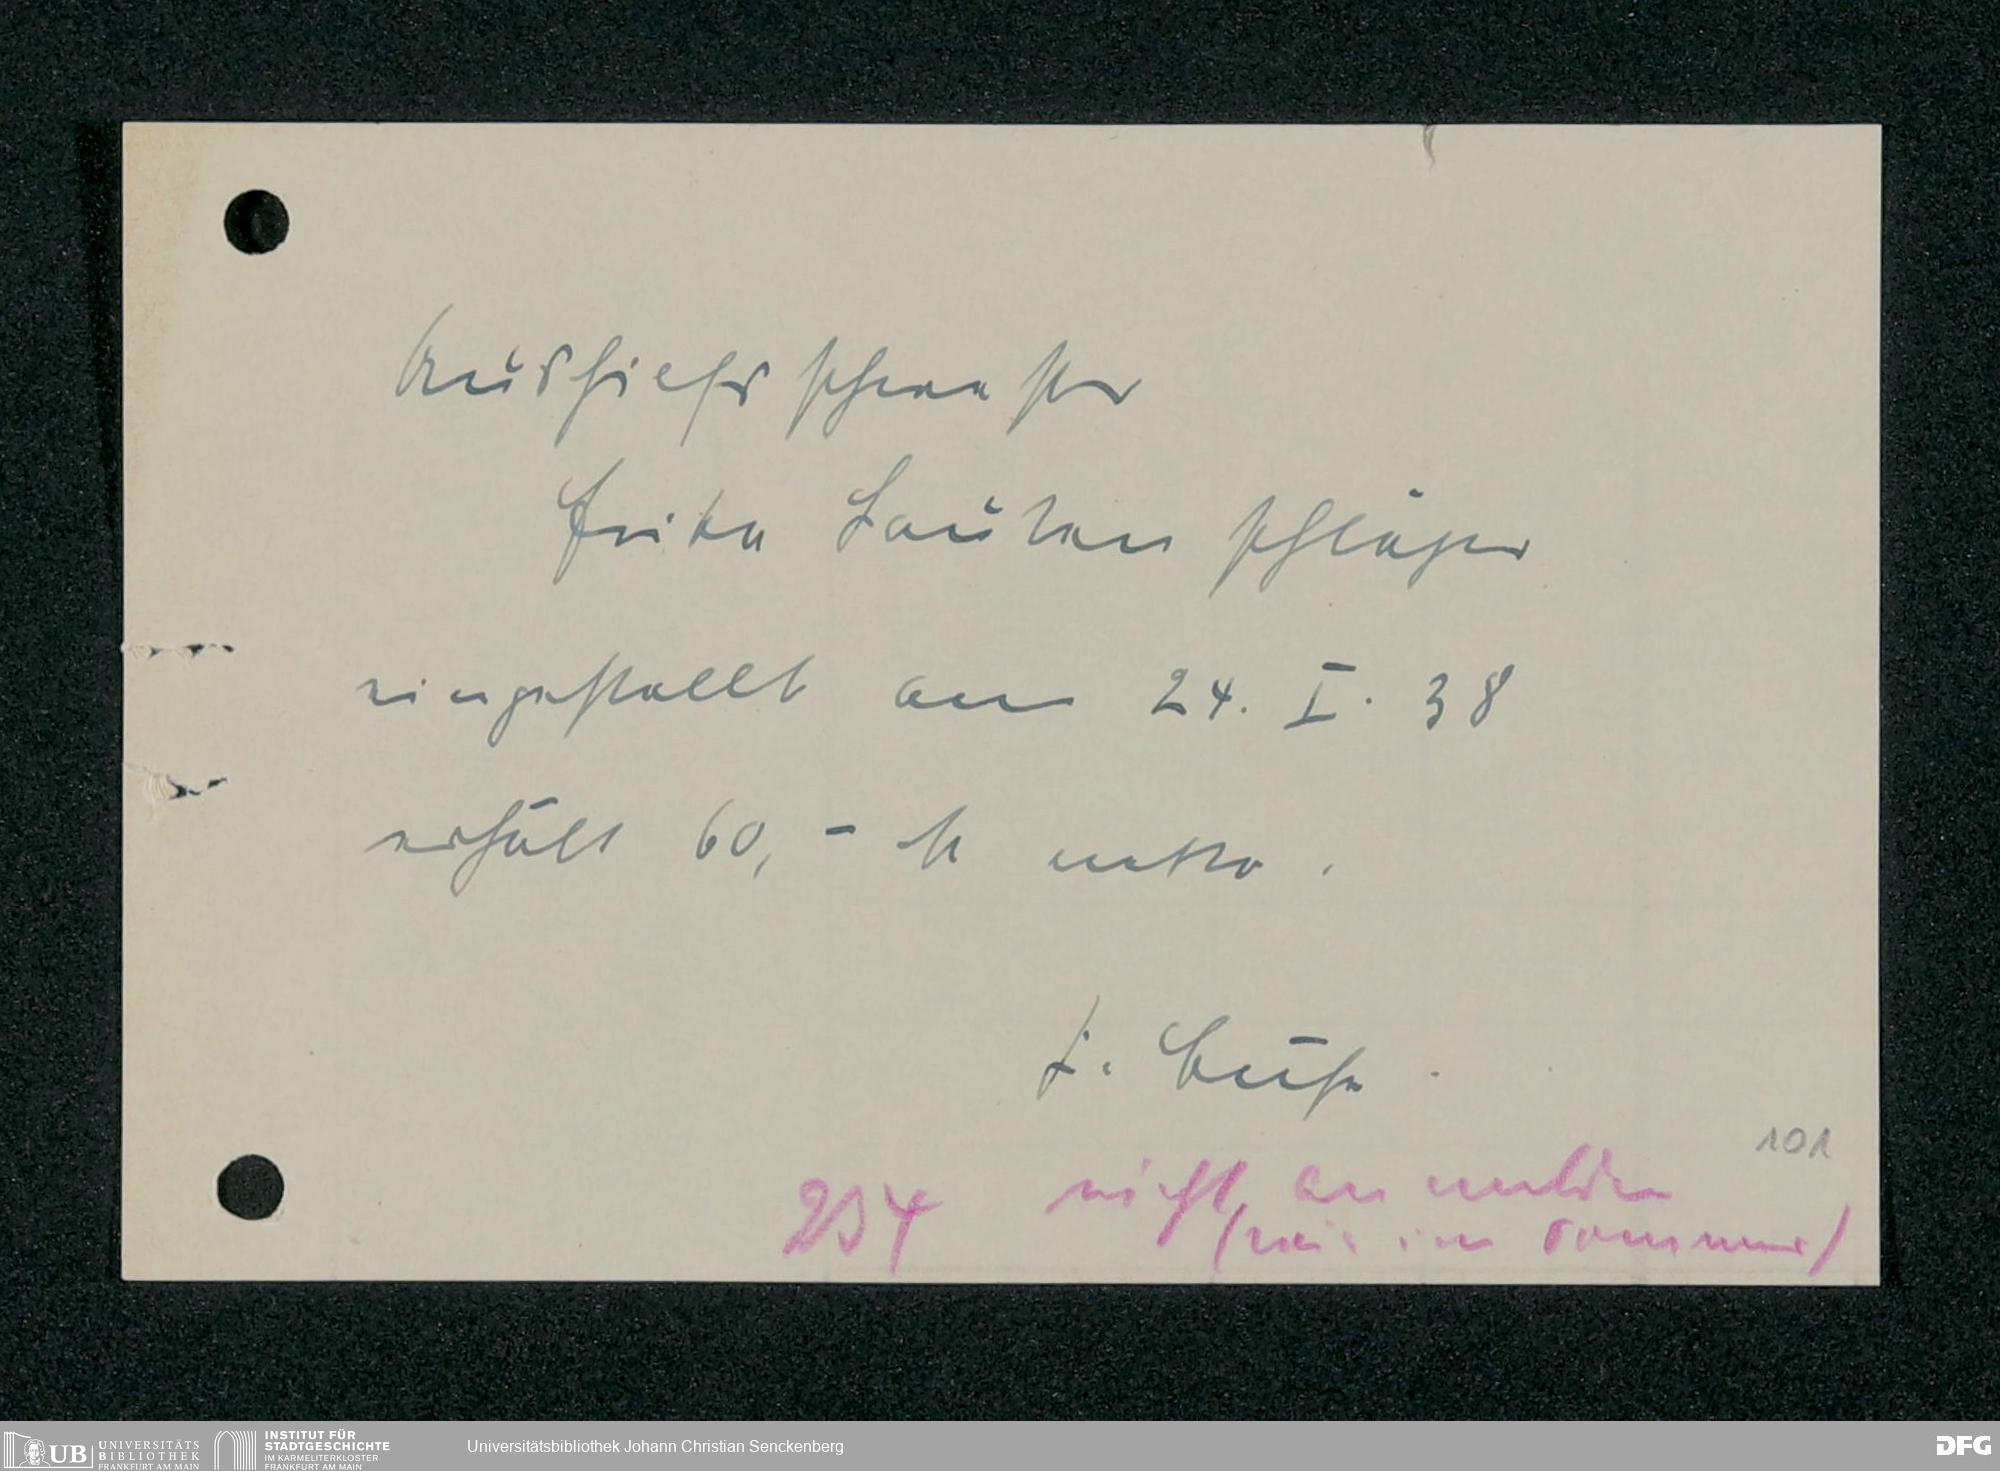 Aushilfsschwester
Frida Lautenschläger
eingestellt am 24. I. 38
erhält 60,- M netto.
101
234 nicht an melden
im Sommer)
UB
UNIVERSITÄTS
BIBLIOTHEK
FRANKFURT AM MAIN
INSTITUT FÜR
STADTGESCHICHTE
IM KARMELITERKLOSTER
FRANKFURT AM MAIN
Universitätsbibliothek Johann Christian Senckenberg
DFG